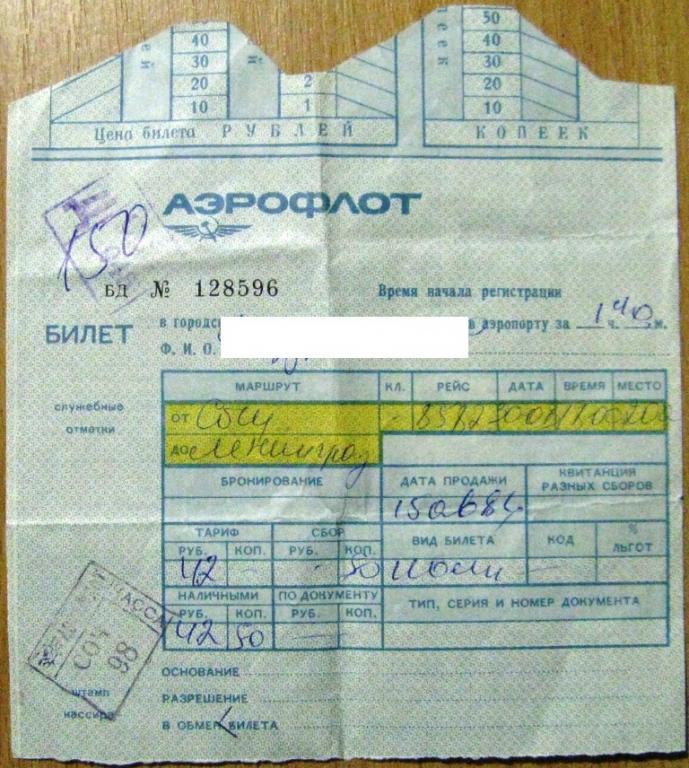 50
40 40
30 30
20 2 20
10 1 10
Цена билета РУБЛЕЙ КОПЕЕК
АЭРОФЛОТ
150
БД № 128596
Время начала регистрации
БИЛЕТ
в аэропорту за 1 ч. 40 м.
Ф. И. О.
МАРШРУТ КЛ. РЕЙС ДАТА ВРЕМЯ МЕСТО
служебные отметки
ОТ Сочи -
ДО Ленинград
БРОНИРОВАНИЕ ДАТА ПРОДАЖИ КВИТАНЦИЯ РАЗНЫХ СБОРОВ
ТАРИФ СБОР ВИД БИЛЕТА КОД % ЛЬГОТ
РУБ. КОП. РУБ. КОП.
42 - - 50 -
НАЛИЧНЫМИ ПО ДОКУМЕНТУ ТИП, СЕРИЯ И НОМЕР ДОКУМЕНТА
РУБ. КОП. РУБ. КОП.
42 50 -
КАССА
СОЧ
98
штамп кассира
ОСНОВАНИЕ
РАЗРЕШЕНИЕ
В ОБМЕН БИЛЕТА